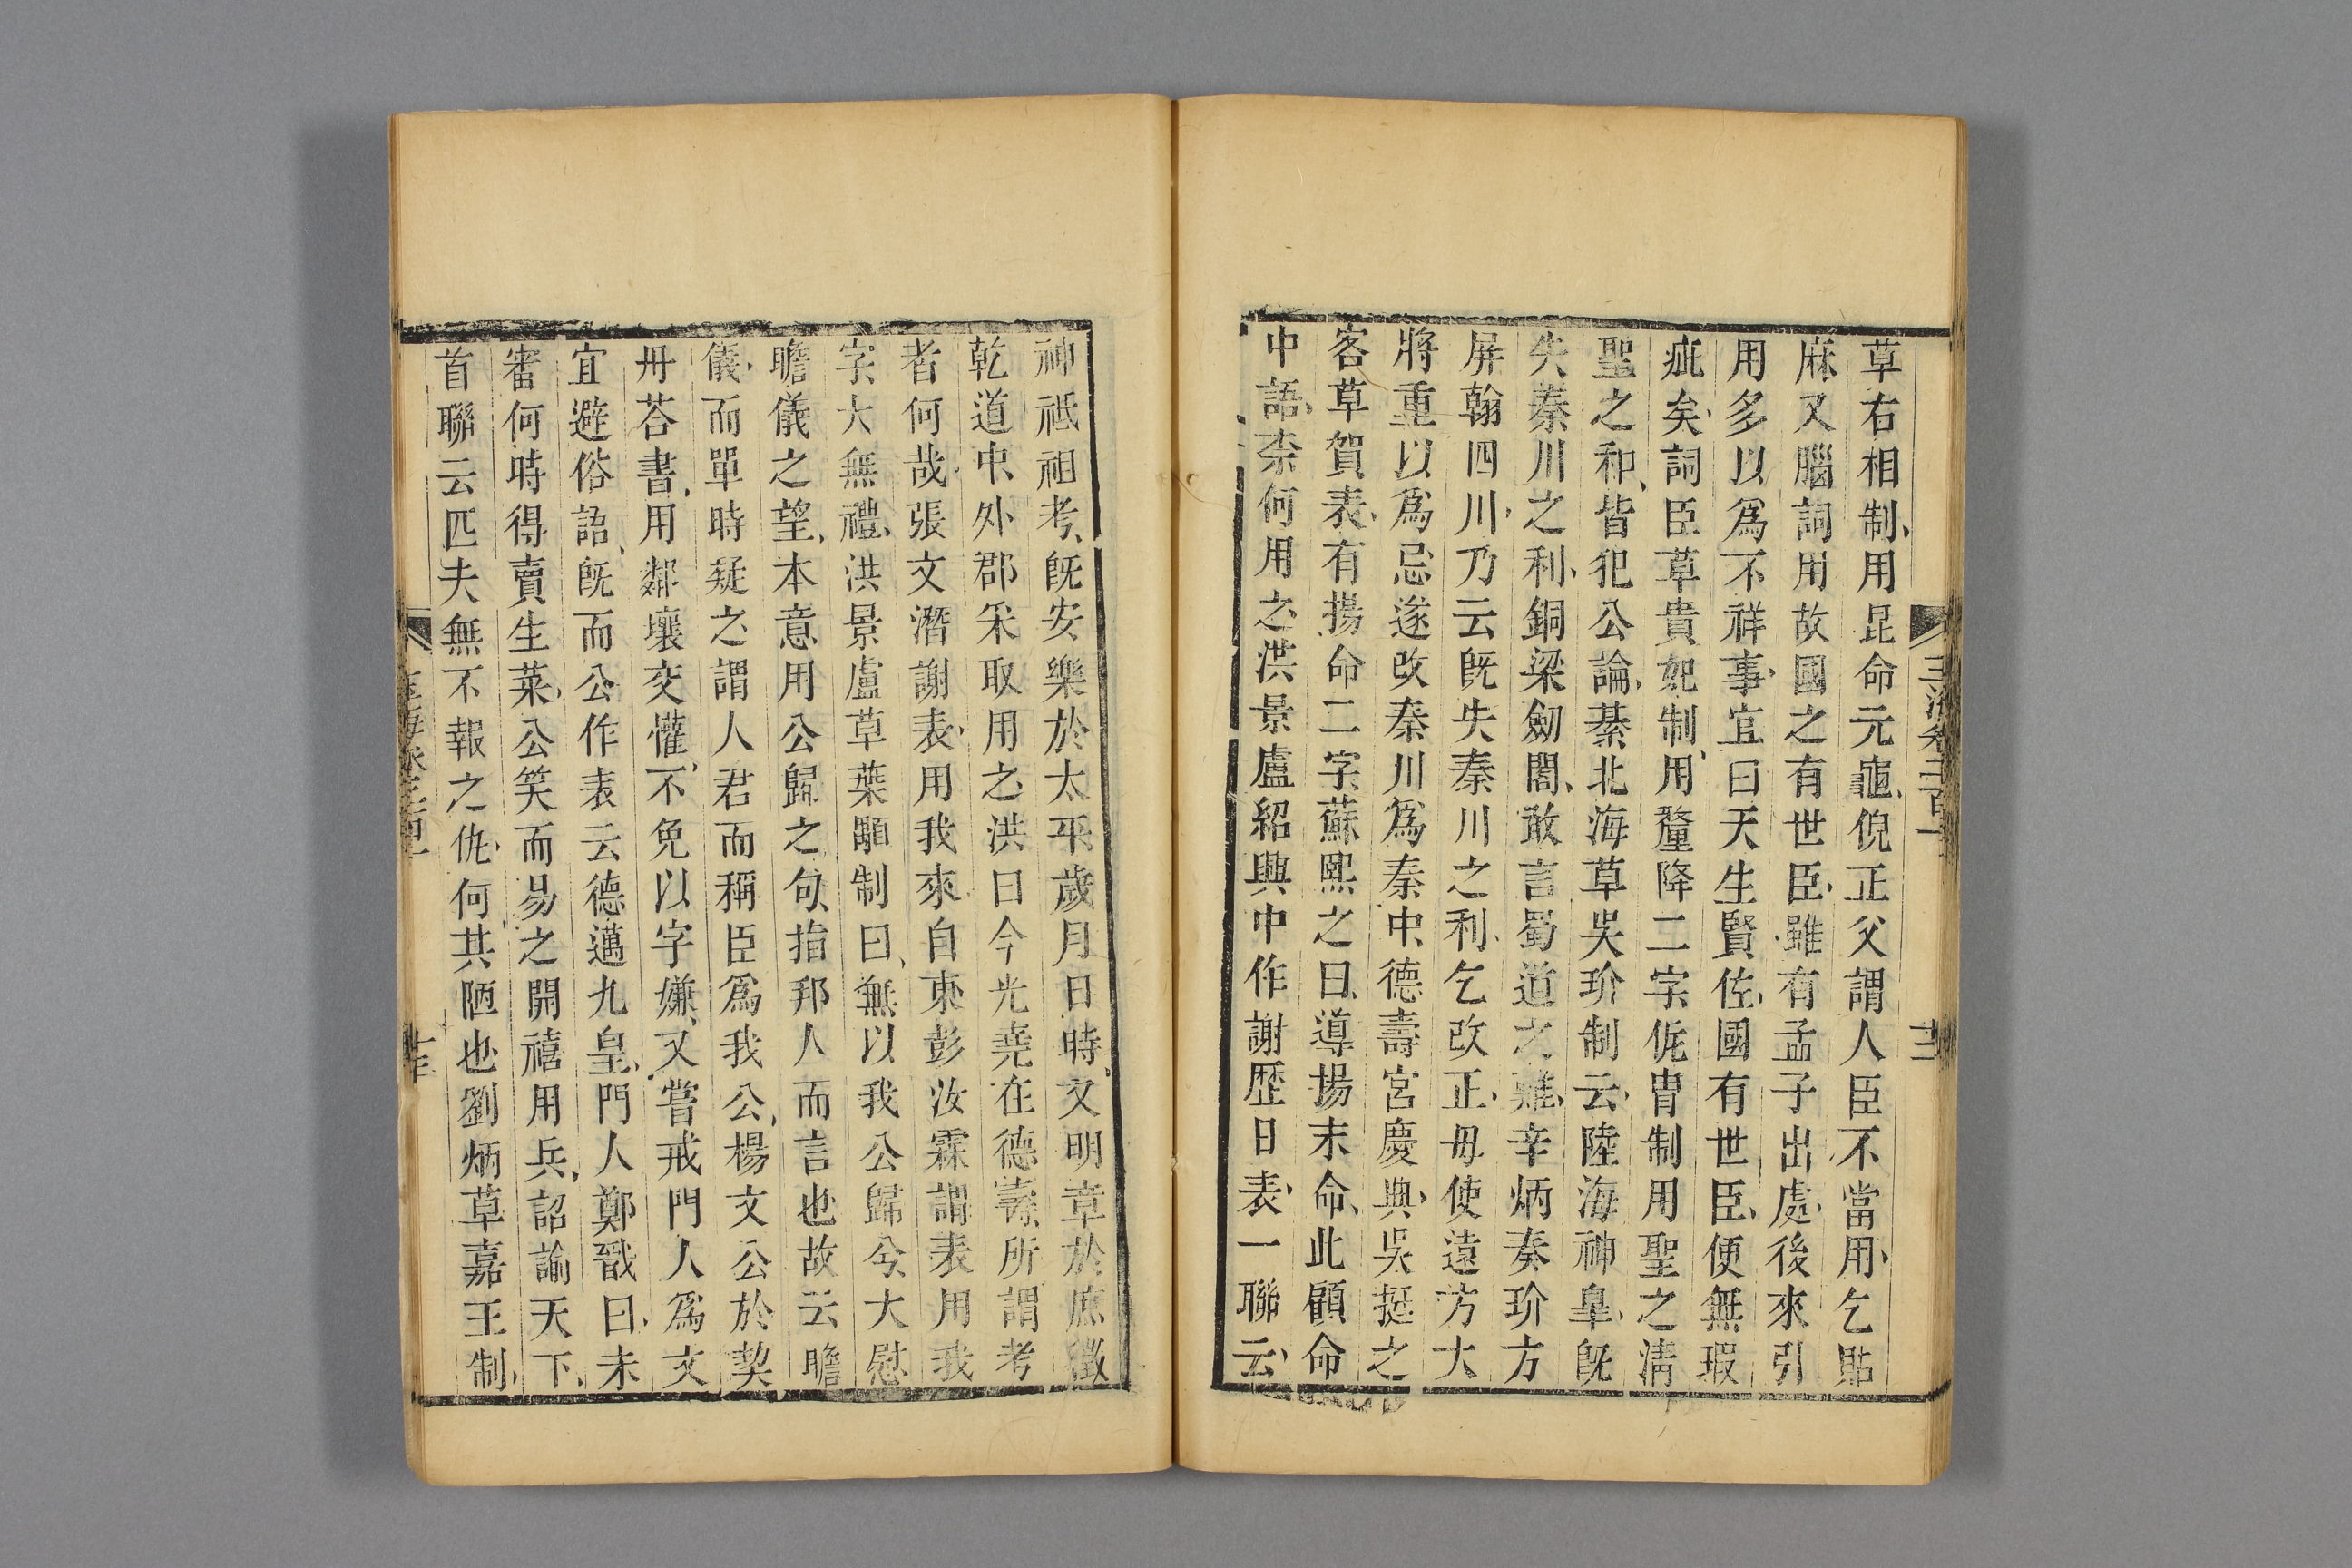 草右相制用昆命元龜倪正父謂人臣不當用乞貼
麻又腦詞用故國之有世臣雖有孟子出處後來引
用多以爲不祥事宜曰天生賢佐國有世臣便無瑕
疵矣詞臣草貴妃制用釐降二字侂胄制用聖之淸
聖之和皆犯公論綦北海草吳玠制云陸海神臯旣
失秦川之利銅梁劒閣敢言蜀道之難辛炳奏玠方
屏翰四川乃云旣失秦川之利乞改正毋使遠方大
將重以爲忌遂改秦川爲秦中德壽宮慶典吳挺之
客草賀表有揚命二字蘇熙之曰導揚末命此顧命
中語柰何用之洪景盧紹興中作謝歷日表一聯云
神祗祖考旣安樂於太平歲月日時又明章於庶徵
乾道中外郡采取用之洪曰今光堯在德壽所謂考
者何哉張文潛謝表用我來自東彭汝霖謂表用我
字大無禮洪景盧草葉顒制曰無以我公歸兮大慰
瞻儀之望本意用公歸之句指邦人而言也故云瞻
儀而單時疑之謂人君而稱臣爲我公楊文公於契
丹荅書用鄰壤交懽不免以字嫌又嘗戒門人爲文
宜避俗語旣而公作表云德邁九皇門人鄭戩曰未
審何時得賣生菜公笑而易之開禧用兵詔諭天下
首聯云匹夫無不報之仇何其陋也劉炳草嘉王制
玉海卷二百一
十二
十三